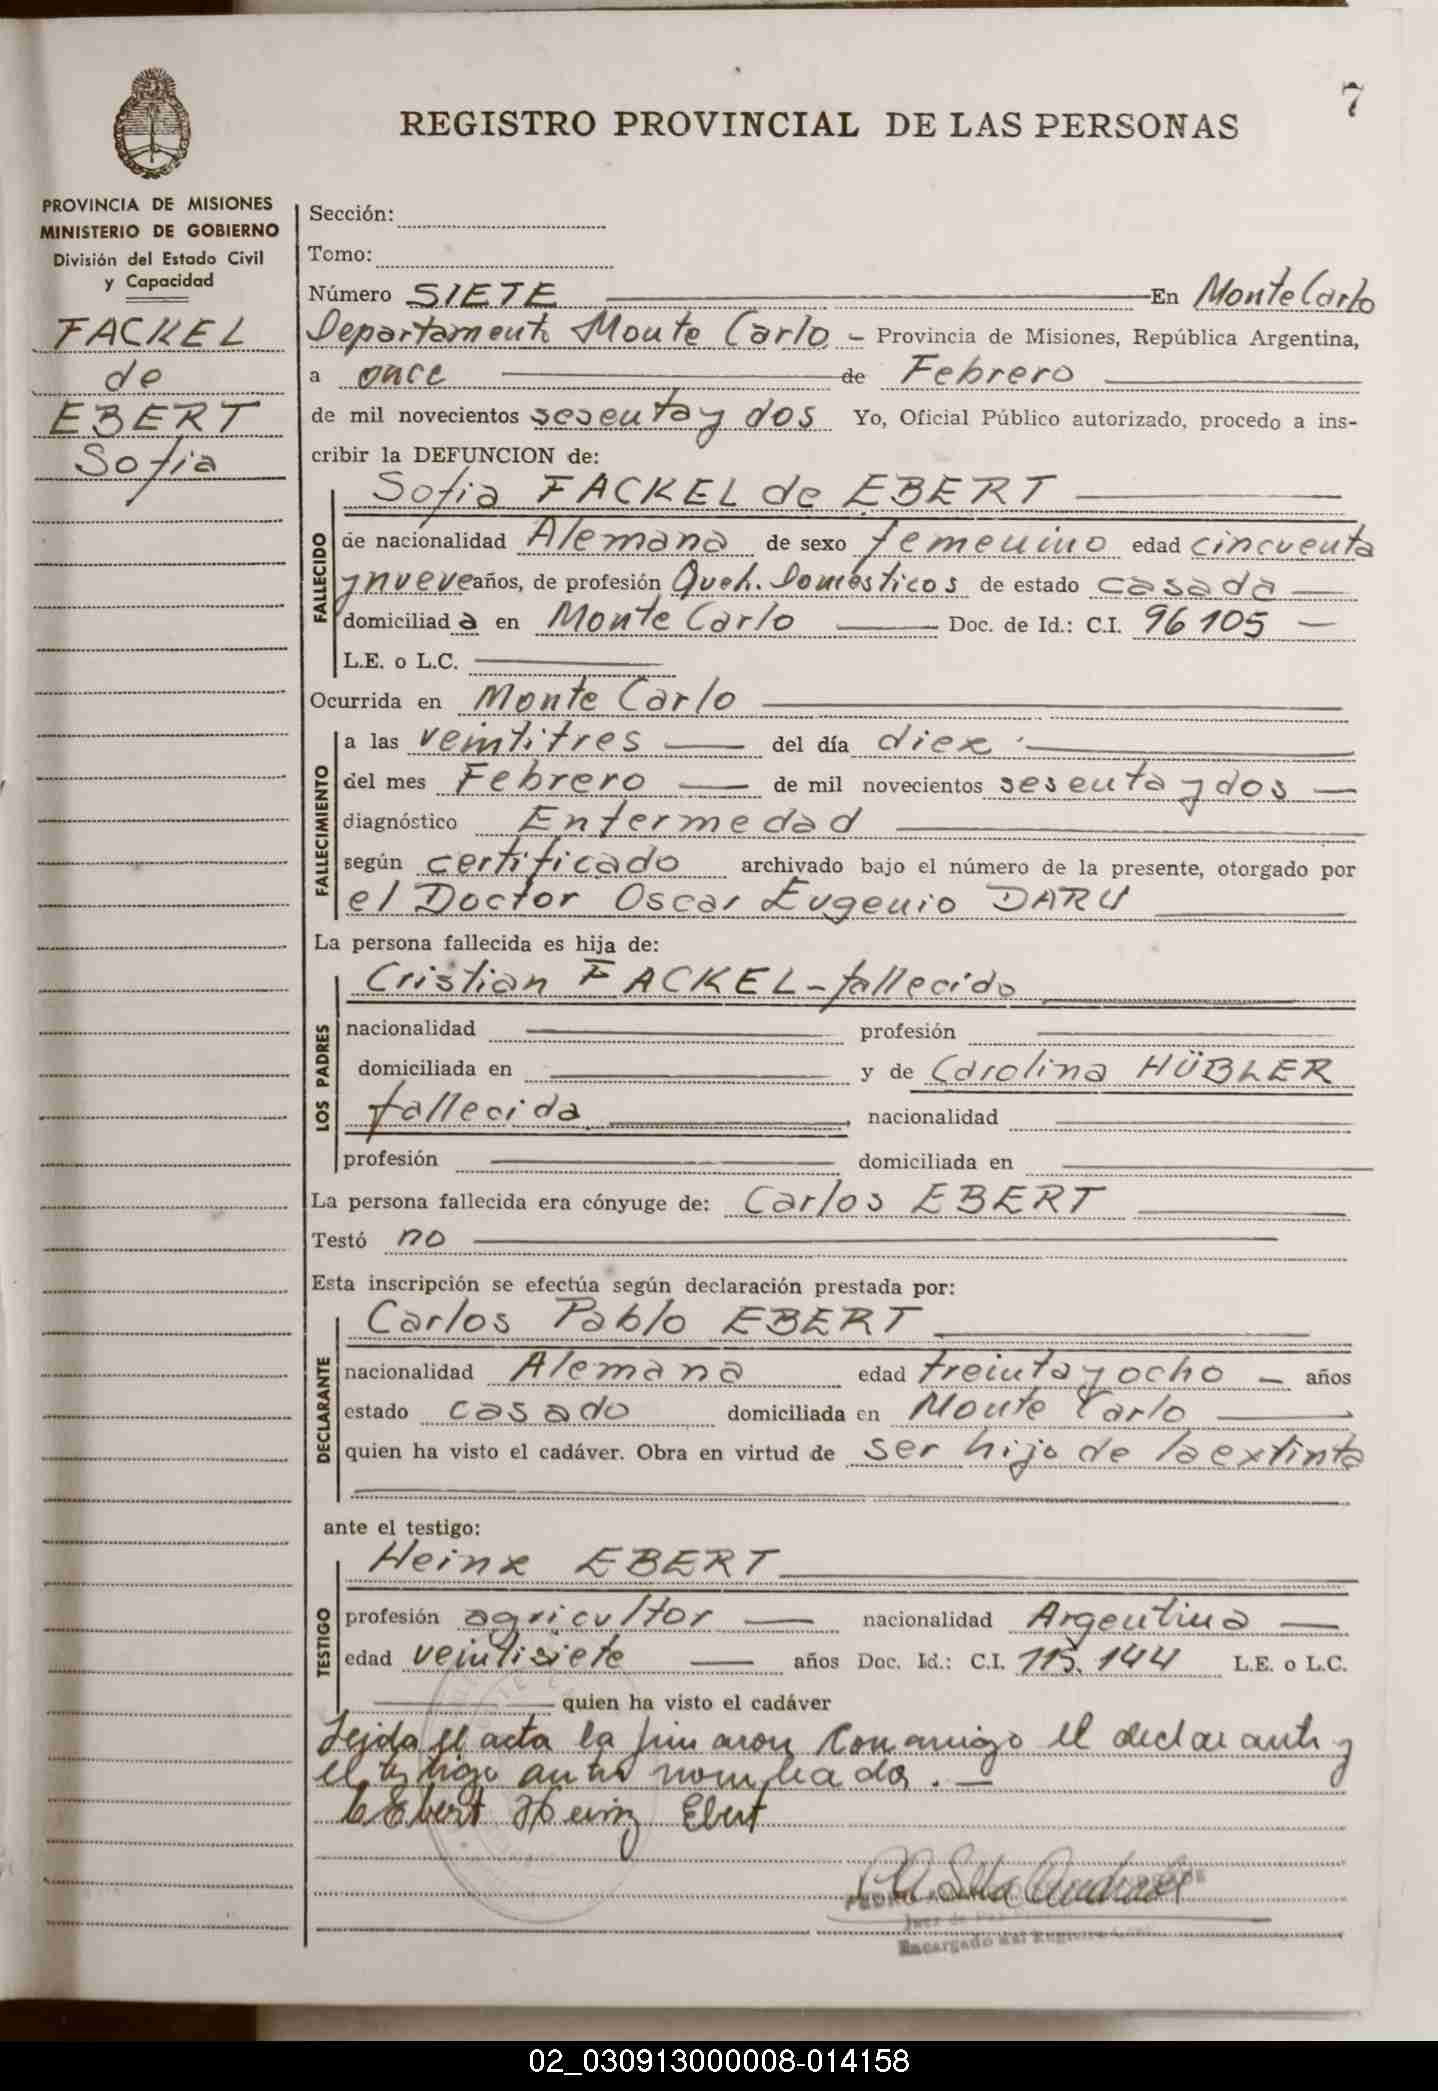 7
REGISTRO PROVINCIAL DE LAS PERSONAS
PROVINCIA DE MISIONES
MINISTERIO DE GOBIERNO
División del Estado Civil
y Capacidad
FACKEL
de
EBERT
Sofia
Sección:
Tomo:
Número SIETE En Monte Carlo
Departamento Monte Carlo - Provincia de Misiones, República Argentina,
a once de Febrero
de mil novecientos sesenta y dos Yo, Oficial Público autorizado, procedo a ins-
cribir la DEFUNCION de:
Sofia FACKEL de EBERT
FALLECIDO
de nacionalidad Alemana de sexo femenino edad cincuenta
y nueve años, de profesión Queh. Domésticos de estado casada
domiciliad a en Monte Carlo Doc. de Id.: C.I. 96105
L.E. o L.C.
Ocurrida en Monte Carlo
FALLECIMIENTO
a las veintitres del día diez
del mes Febrero de mil novecientos sesenta y dos
diagnóstico Enfermedad
según certificado archivado bajo el número de la presente, otorgado por
el Doctor Oscar Eugenio DARU
La persona fallecida es hija de:
LOS PADRES
Cristian FACKEL - fallecido
nacionalidad profesión
domiciliada en y de Carolina HÜBLER
fallecida nacionalidad
profesión domiciliada en
La persona fallecida era cónyuge de: Carlos EBERT
Testó no
Esta inscripción se efectúa según declaración prestada por:
DECLARANTE
Carlos Pablo EBERT
nacionalidad Alemana edad treinta y ocho años
estado casado domiciliada en Monte Carlo
quien ha visto el cadáver. Obra en virtud de ser hijo de la extinta
ante el testigo:
TESTIGO
Heinz EBERT
profesión agricultor nacionalidad Argentina
edad veintisiete años Doc. Id.: C.I. 115.144 L.E. o L.C.
quien ha visto el cadáver
Leida el acta la firmaron conmigo el declarante y
el testigo antes nombrados.
C Ebert Heinz Ebert
PEDRO
Juez de Paz
Encargado del Registro
02_030913000008-014158